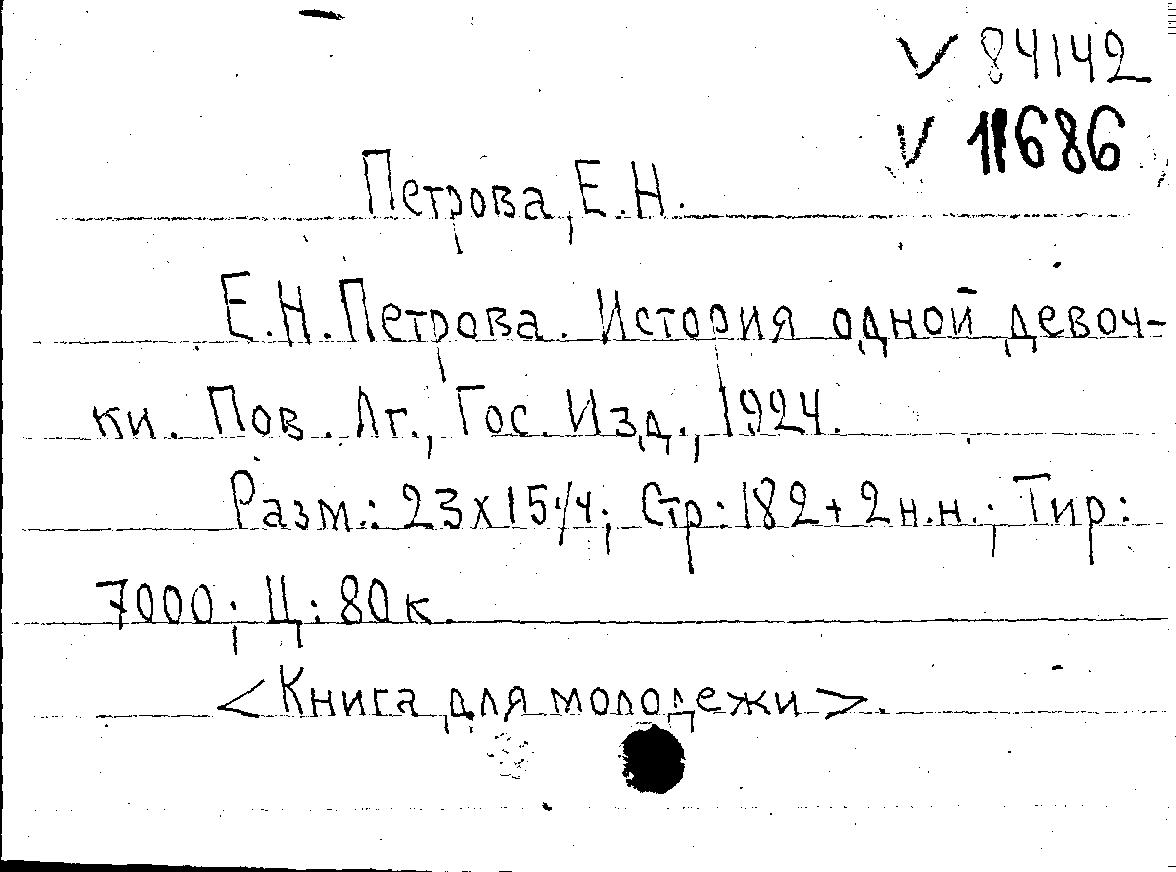 V 84142
V 11686
Петрова, Е.Н.
Е.Н.Петрова. История одной девоч-
ки. Пов. Лг., Гос. Изд., 1924.
Разм.: 23х15 1/4; Стр: 182 + 2 н.н.; Тир:
7000; Ц: 80 к.
<Книга для молодежи>.